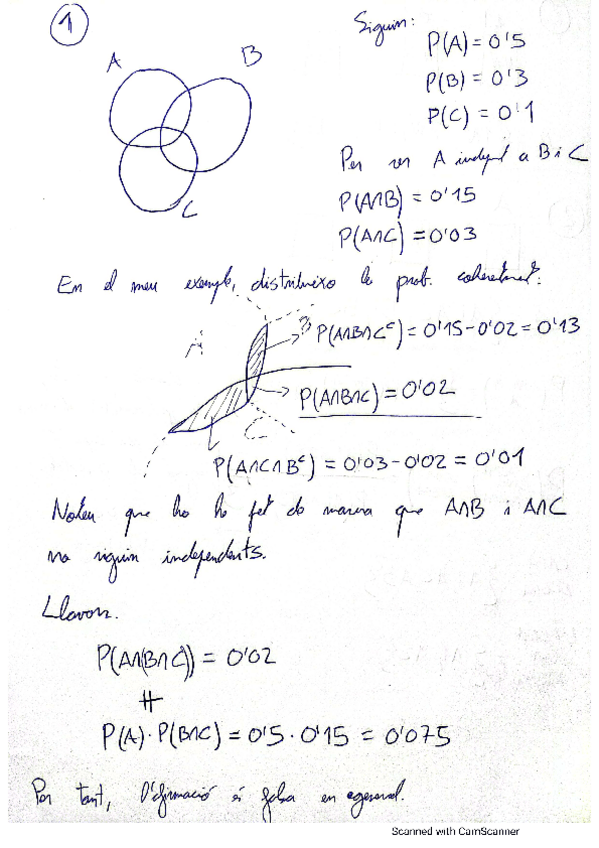 1
Siguin:
P(A) = 0'5
P(B) = 0'3
P(C) = 0'1
A
B
C
Per ser A indept a B i C
P(A∩B) = 0'15
P(A∩C) = 0'03
En el meu exemple, distribueixo le prob. coherentmet:
A
B
P(A∩B∩Cᶜ) = 0'15-0'02 = 0'13
P(A∩B∩C) = 0'02
C
P(A∩C∩Bᶜ) = 0'03-0'02 = 0'01
Noteu que ho he fet de manera que A∩B i A∩C
no siguin independents.
Llavors.
P(A∩(B∩C)) = 0'02
≠
P(A)·P(B∩C) = 0'5 · 0'15 = 0'075
Per tant, l'afirmació és falsa en general.
Scanned with CamScanner